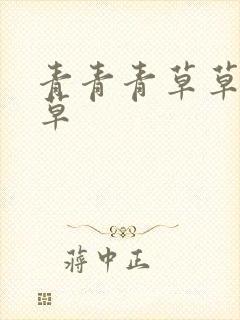 青青青草草
草
蒋中正